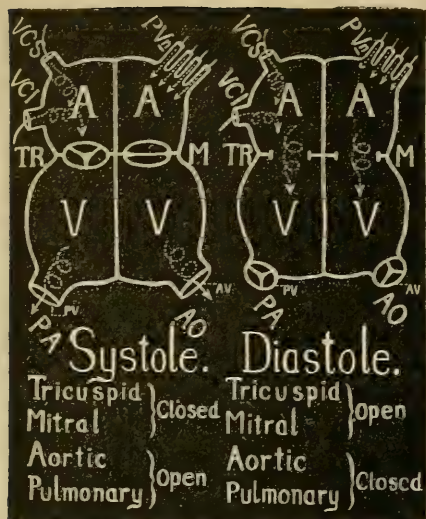 VCS
PVS
VCI
A A
TR M
V V
PV AV
PA AO
VCS
PVS
VCI
A A
TR M
V V
PV AV
PA AO
Systole. Diastole.
Tricuspid
Mitral } Closed
Aortic
Pulmonary } Open
Tricuspid
Mitral } Open
Aortic
Pulmonary } Closed